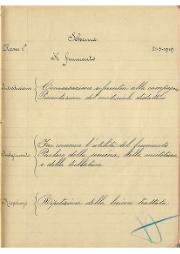 Schema
Classe 1ª
21-3-1919
Il frumento
Introduzione { Conversazione infantile alla campagna
Presentazione del materiale didattico
Svolgimento { Far conoscere l'utilità del frumento
Parlare della semina, della mietitura
e della trebbiatura
Riepilogo { Ripetizione della lezione trattata.